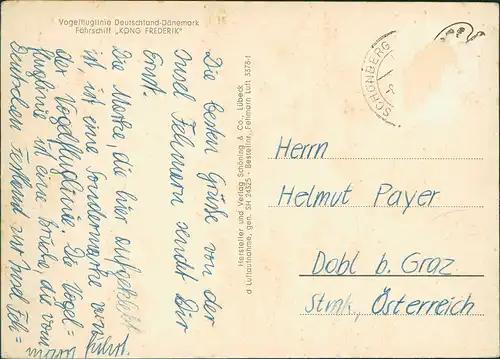 Vogelfluglinie Deutschland-Dänemark
Fährschiff „KONG FREDERIK"
Die besten Grüße von der
Insel Fehmarn sendet Dir
Ernst.
Die Marke, die hier aufgeklebt
ist, ist eine Sondermarke von
der Vogelfluglinie. Die Vogel=
fluglinie ist eine Brücke, die vom
Deutschen Festland zur Insel Feh=
marn führt.
Hersteller und Verlag Schöning & Co., Lübeck
d Luftaufnahme, gen. SH 24525 - Bestellnr. „Fehmarn Luft 3378-r
SCHÖNBERG
Herrn
Helmut Payer
Dobl b. Graz
Stmk, Österreich